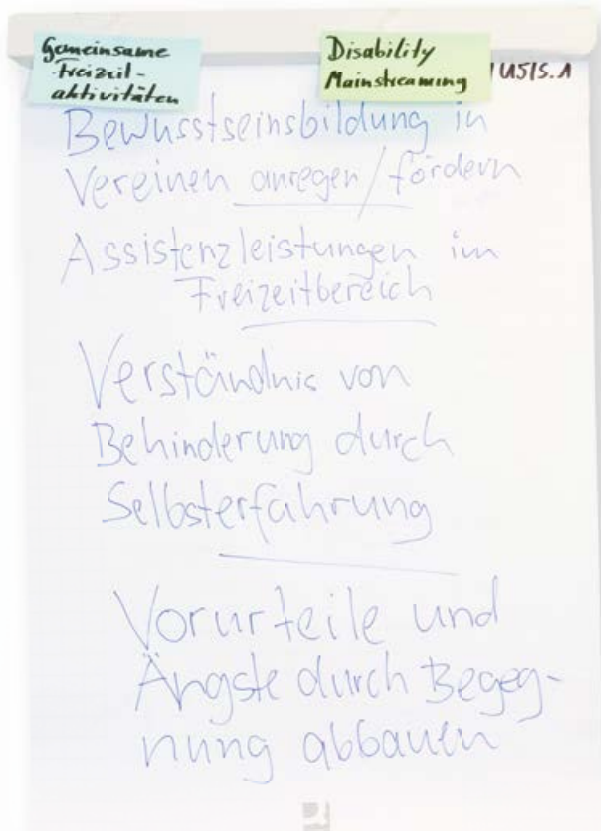 Gemeinsame
Freizeit-
aktivitäten
Disability
Mainstreaming
Bewusstseinsbildung in
Vereinen anregen/fördern
Assistenzleistungen im
Freizeitbereich
Verständnis von
Behinderung durch
Selbsterfahrung
Vorurteile und
Ängste durch Begeg-
nung abbauen